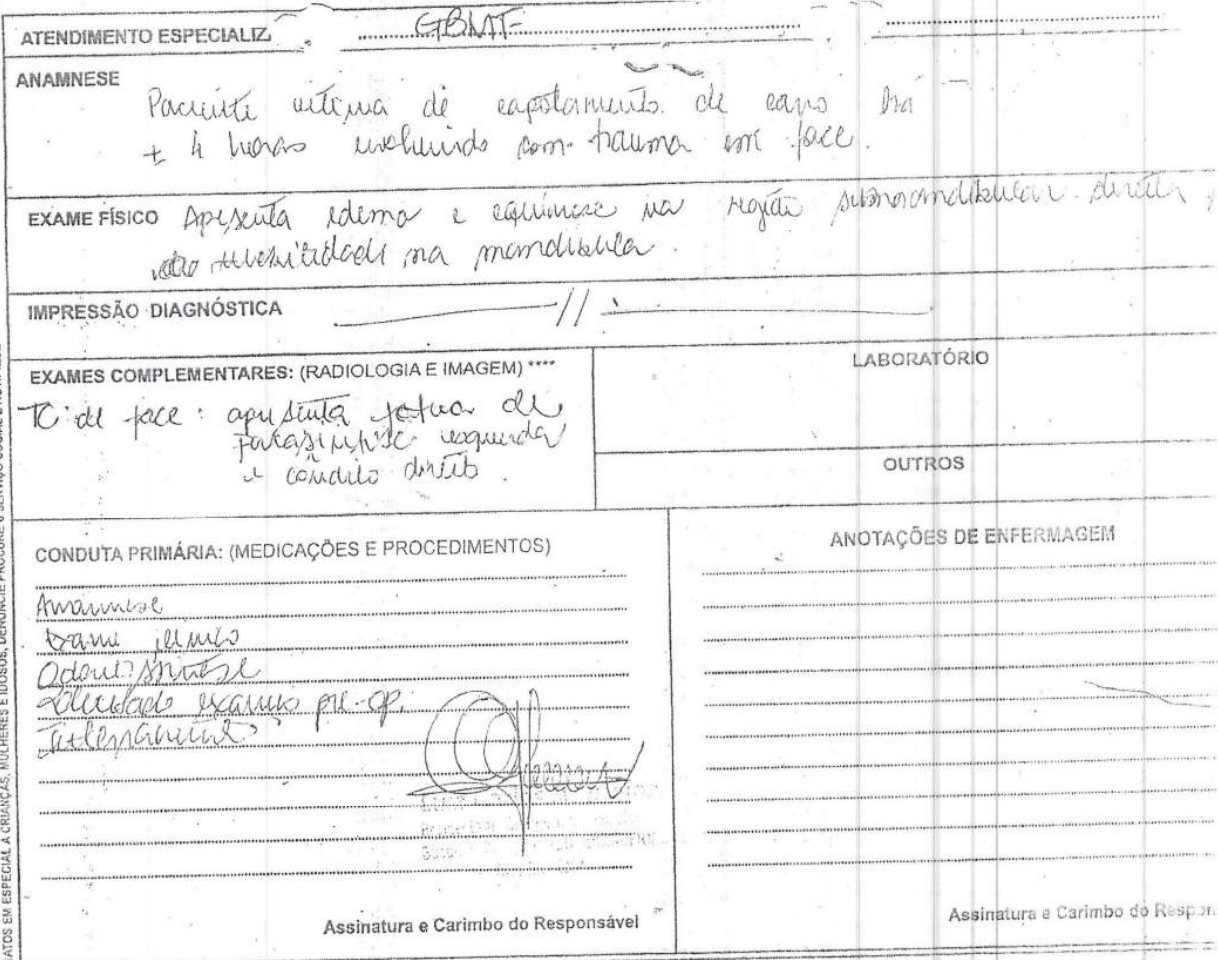 ATENDIMENTO ESPECIALIZ
ANAMNESE
Paciente vítima de capotamento de carro há
± 4 horas evoluindo com trauma em face.
EXAME FÍSICO Apresenta edema e equimose na região submandibular direita,
mobilidade na mandíbula.
IMPRESSÃO DIAGNÓSTICA
EXAMES COMPLEMENTARES: (RADIOLOGIA E IMAGEM) ****
TC de face: apresenta fratura de
parassínfise esquerda
e côndilo direito.
LABORATÓRIO
OUTROS
CONDUTA PRIMÁRIA: (MEDICAÇÕES E PROCEDIMENTOS)
Anamnese
Exame físico
Odontossíntese
Solicitado exames pré-op.
Internamento
Assinatura e Carimbo do Responsável
ANOTAÇÕES DE ENFERMAGEM
Assinatura e Carimbo do Respon
ATOS EM ESPECIAL A CRIANÇAS, MULHERES E IDOSOS, DENUNCIE PROCURE O SERVIÇO SOCIAL